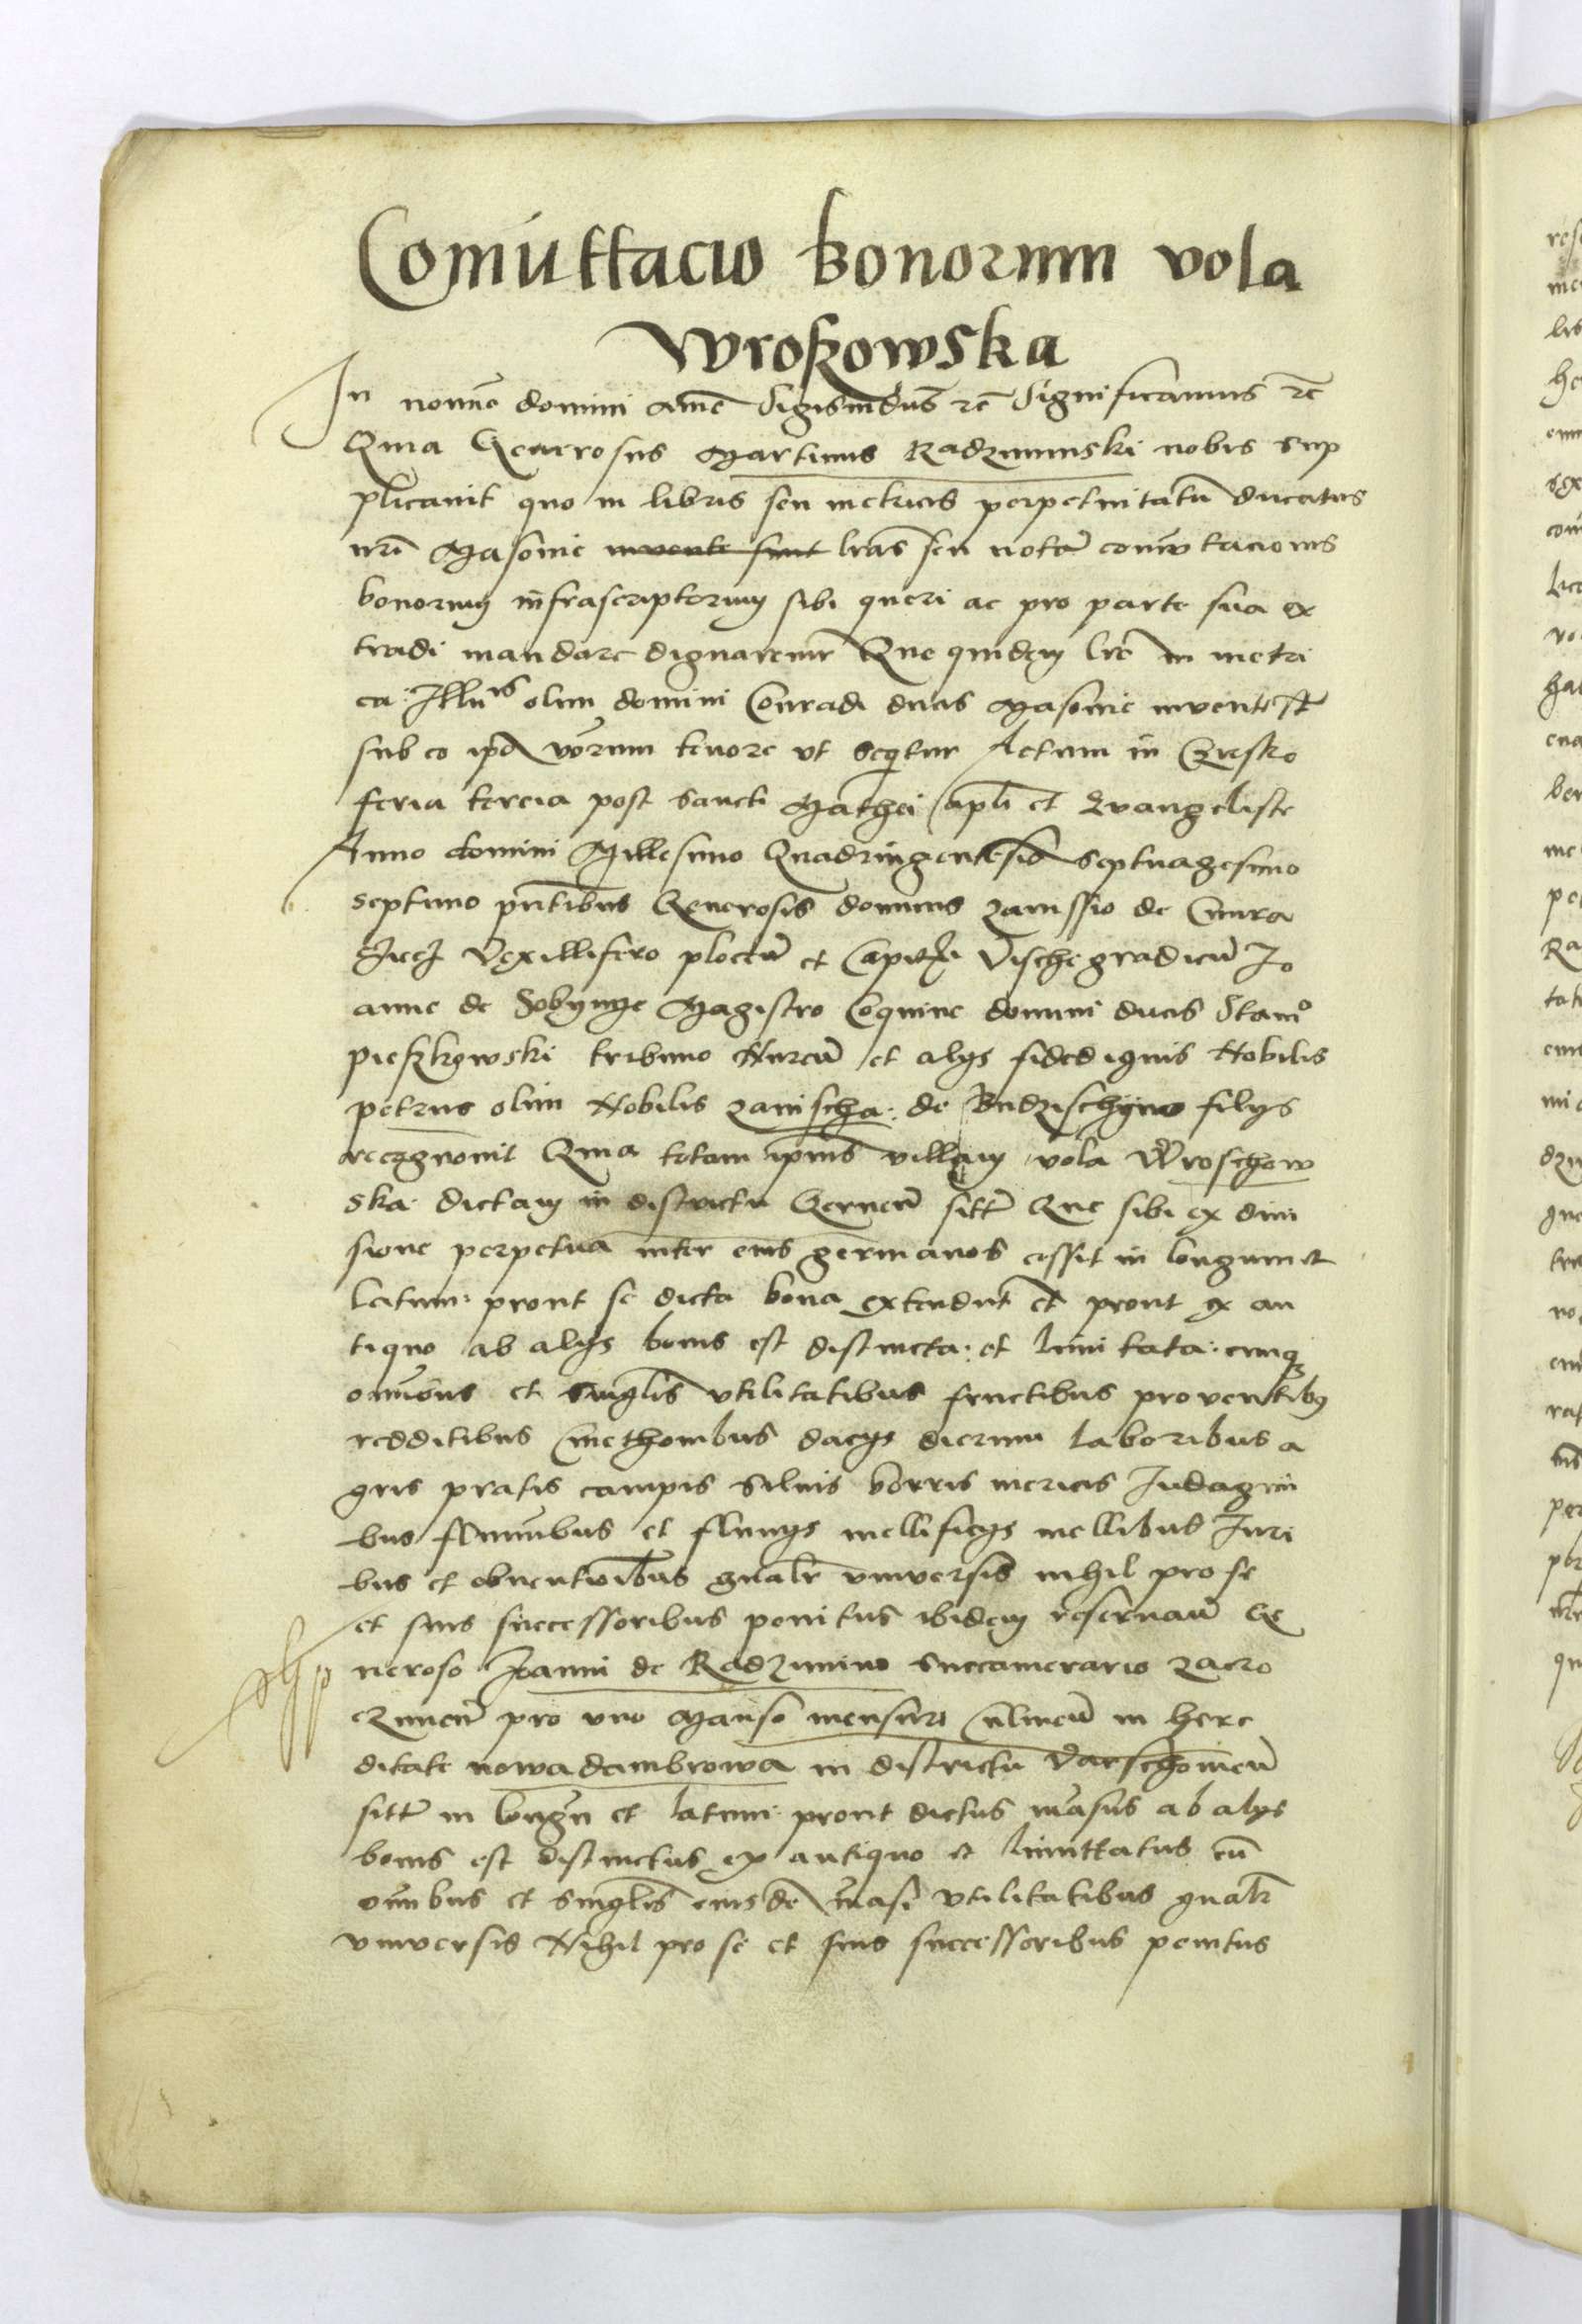 Comuttacio bonorum vola
Wroßkowska
In nomine domini amē Sigismūdus rc̄ Significamus rc̄
Quia Generosus Martinus Radzyminski nobis sup
plicavit quo in libris seu metricis perpetuitatū ducatus
nrī Masovie invente sunt lrās seu notas comutacionis
bonorum infrascriptorum sibi queri ac pro parte sua ex
tradi mandare dignaremur Que quidem lrē in metri
ca Illuis olim domini Conradi ducis Masovie invente st̄
sub eo ipo vborum tenore vt seqtur Actum in Czirsko
feria tercia post sancti Mathei apli et Evangeliste
Anno domini Millesimo Quadringentesio septuagesimo
septimo pntibus Generosis dominis zavissio de
Vexillifero plocen et Capito Vischegradien Jo
anne de Sobynye Magistro Coquine domini ducis Stanio
pieskowski tribuno Nuren et alys fidedignis Nobilis
petrus olim Nobilis zavischa de Budzischyno filys
recognovit Quia totam ipius villam vola Wroschow
ska dictam in districtu Gernen sittr Que sibi ex divi
sione perpetua inter eius germanos cessit in longum et
latum prout se dicta bona extendut et prout ex an
tiquo ab alys bonis est distincta et limitata cumqz
omibus et singlis vtilitatibus fructibus proventibus
redditibus Cmethonibus dacys dierum laboribus a
gris pratis campis silvis borris mericis Indagini
bus fluminibus et fluvys mellificys mellibus Juri
bus et obventioibus gnalr vniversis nihil pro se
et suis successoribus penitus ibidem reservan Ge
neroso Joanni de Radzimino succamerario zacro
czimen pro vno Manso mensure Culmen in here
ditate nowadambrowa in districtu Varschovien
sitt in longū et latum prout dictus māsus ab alys
bonis est distinctus ex antiquo et limittatus cū
omibus et singlis eiusde māsi vtilitatibus gnalr
vniversis Nihil pro se et suis successoribus penitus